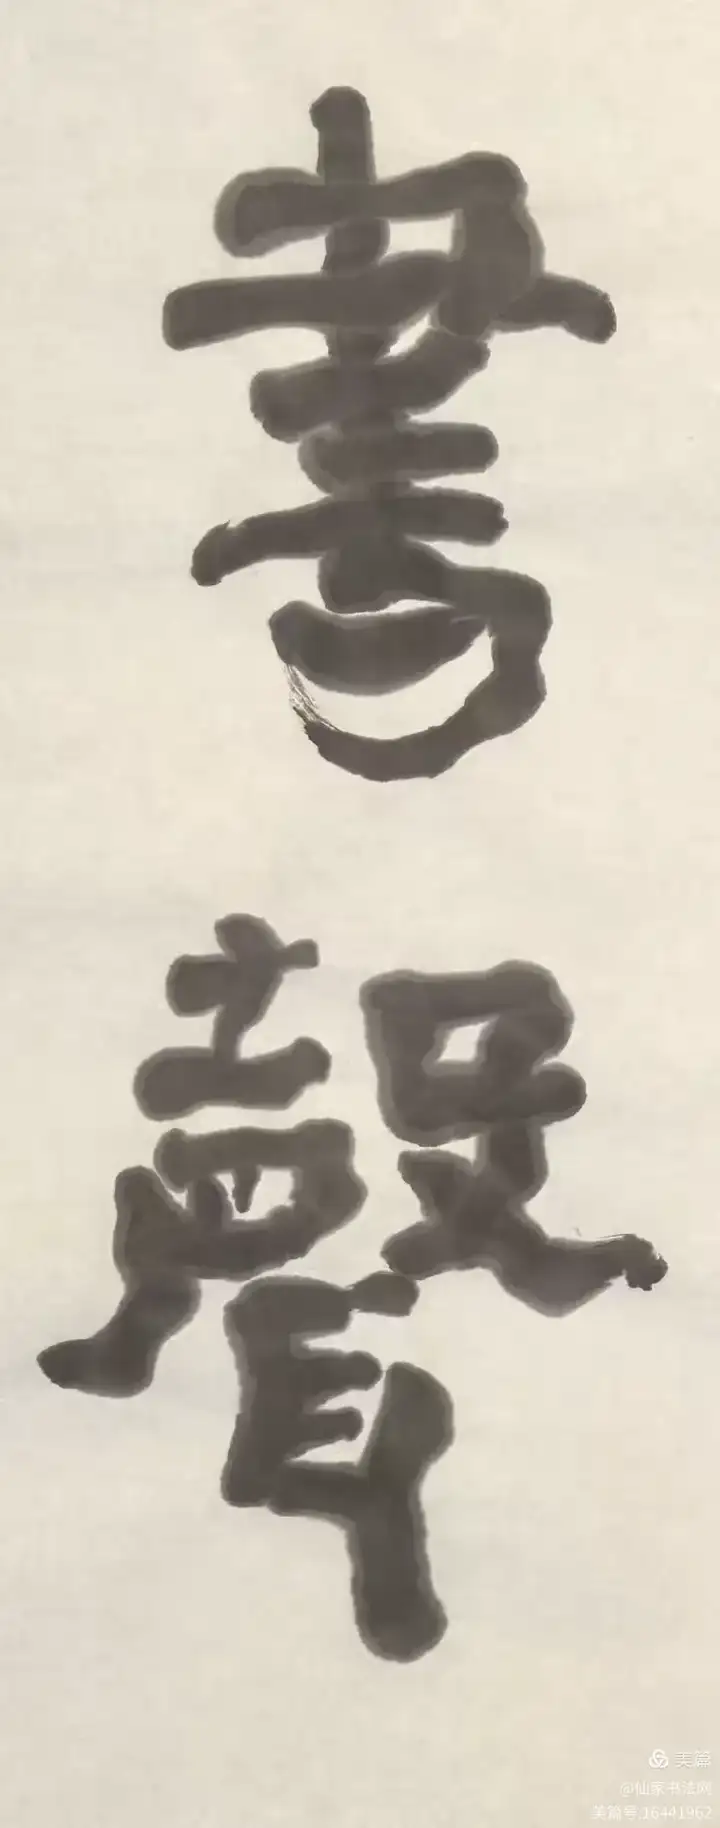 書
聲
美篇
@仙家书法网
美篇号:16441962